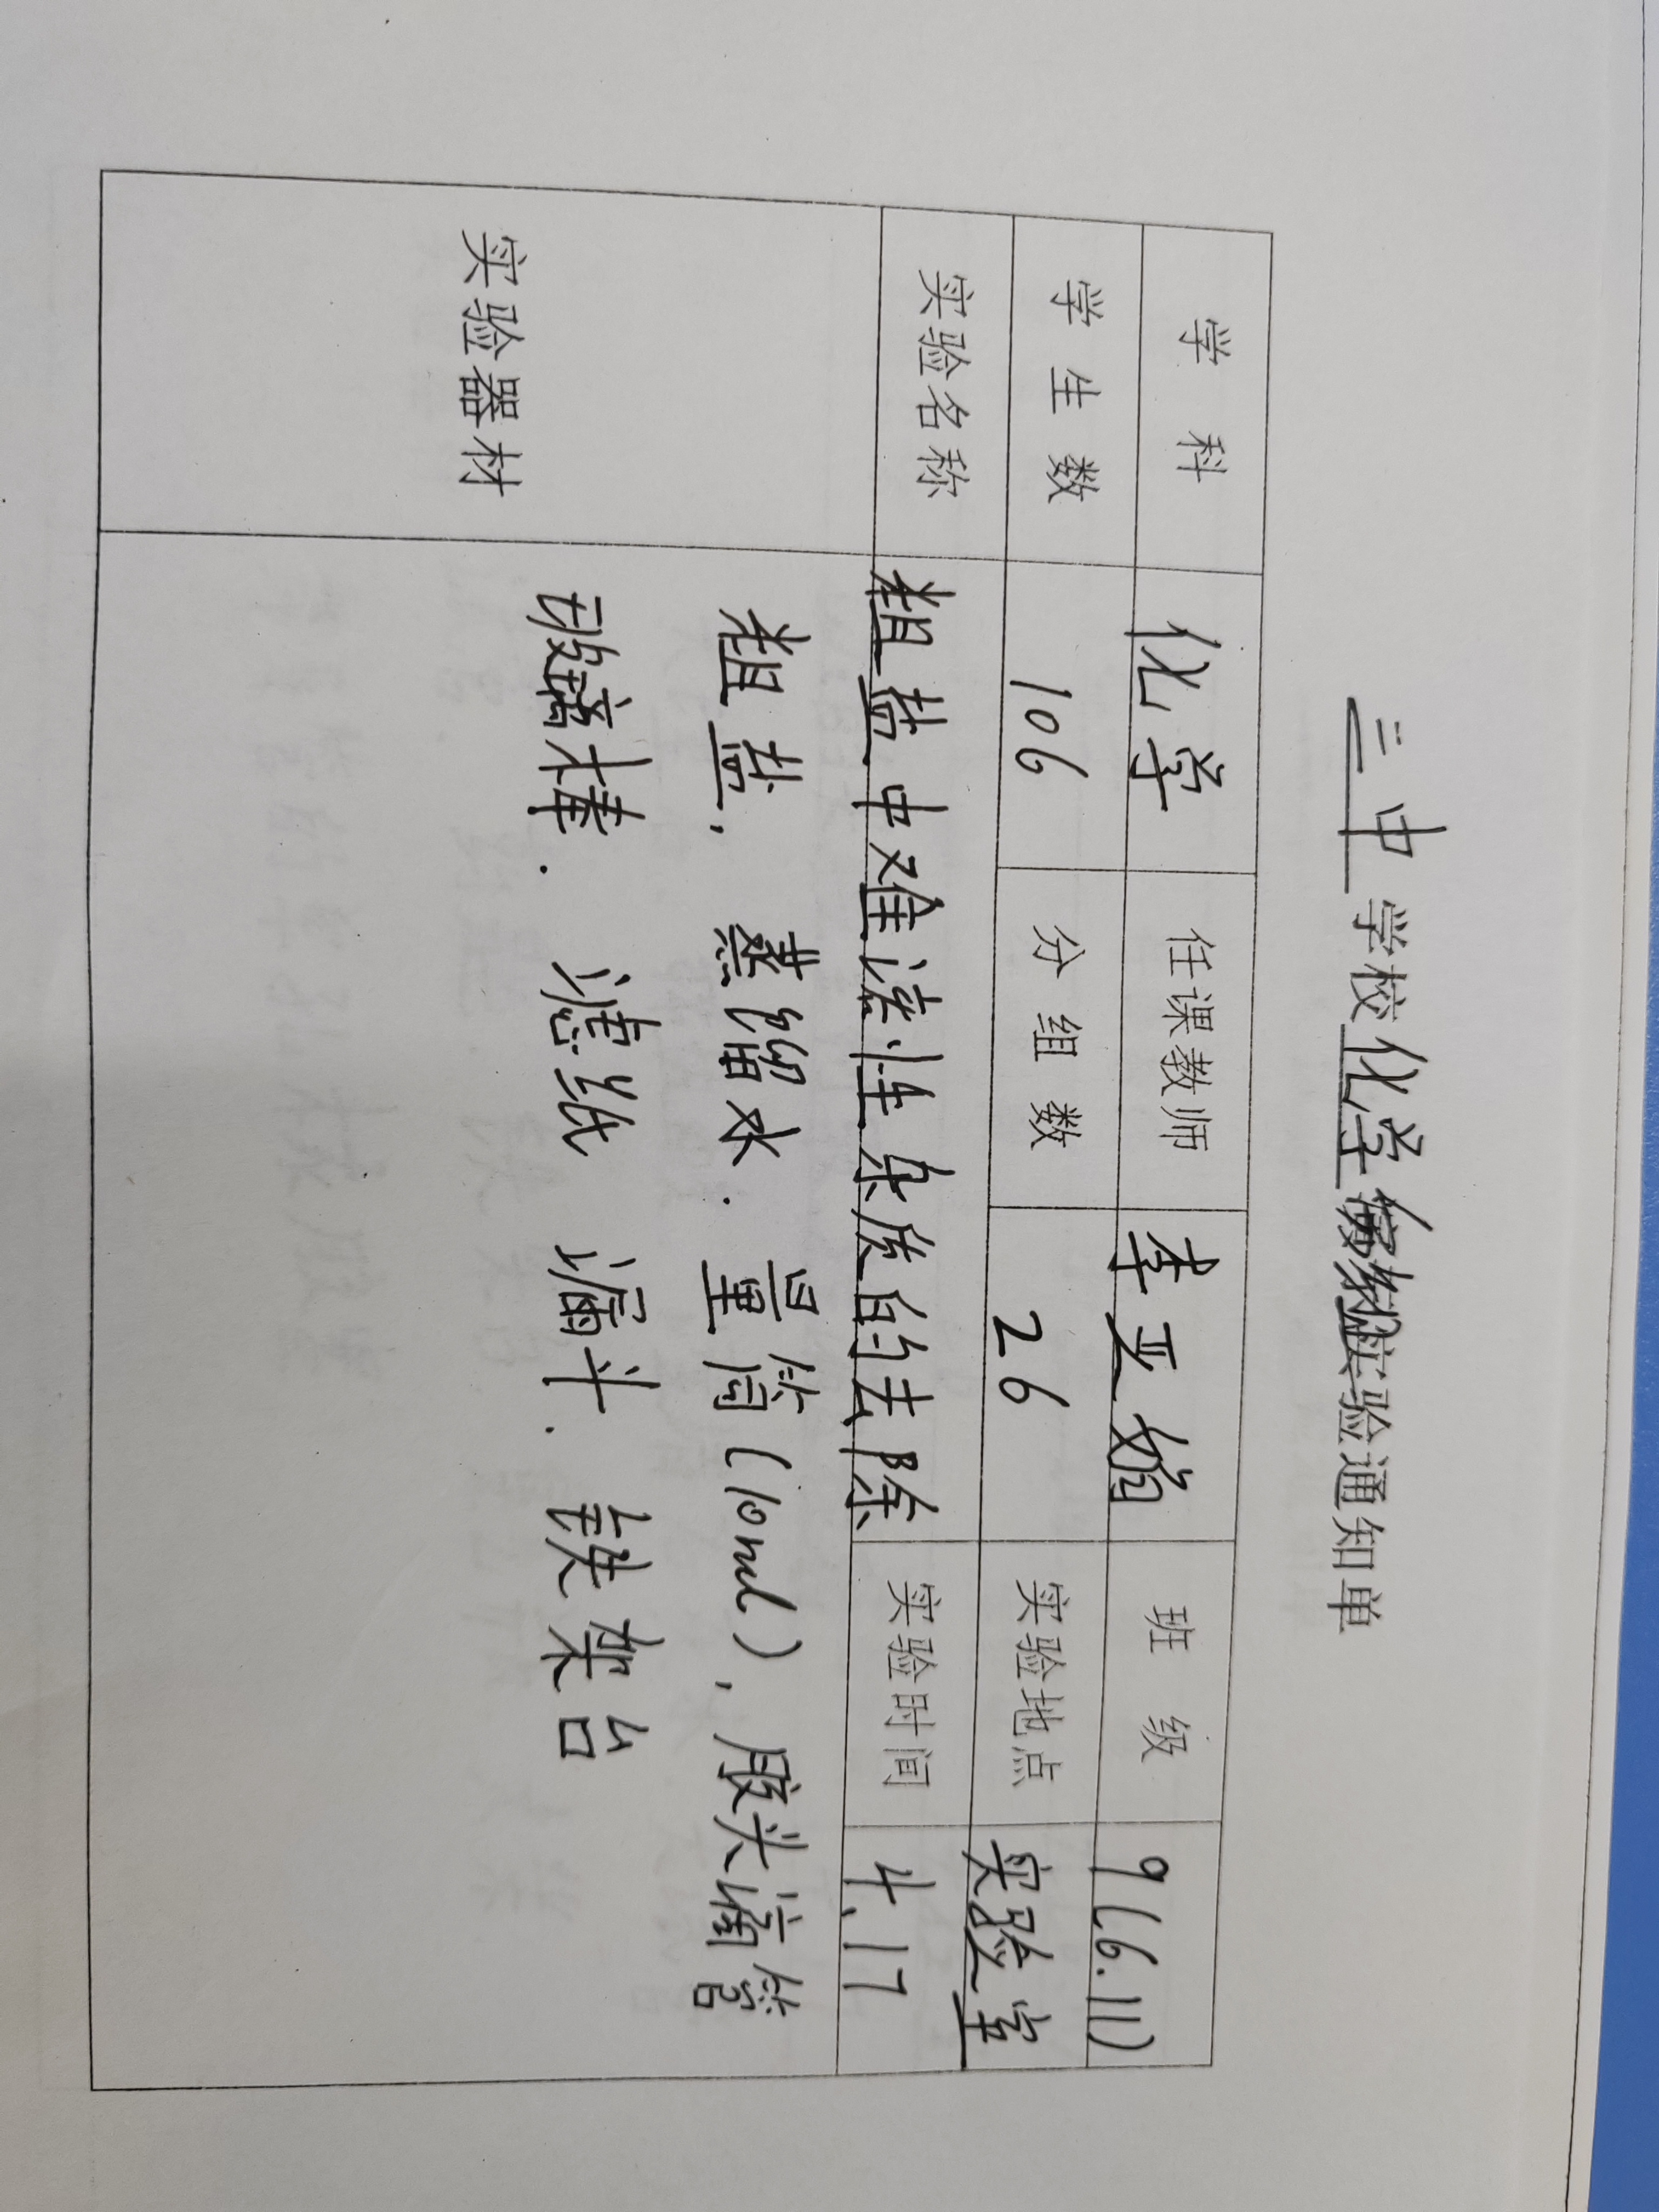 三中学校化学实验通知单
学科 化学 任课教师 李亚娟 班级 9(6.11)
学生数 106 分组数 26 实验地点 实验室
实验名称 粗盐中难溶性杂质的去除 实验时间 4.17
实验器材
粗盐, 蒸馏水. 量筒(10ml), 胶头滴管
玻璃棒. 滤纸 漏斗. 铁架台